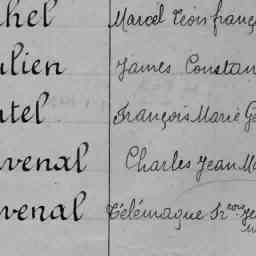 hel Marcel Léon franç
ulien James Constan
tel François Marie Ge
venal Charles Jean Ma
venal Télémaque Fr